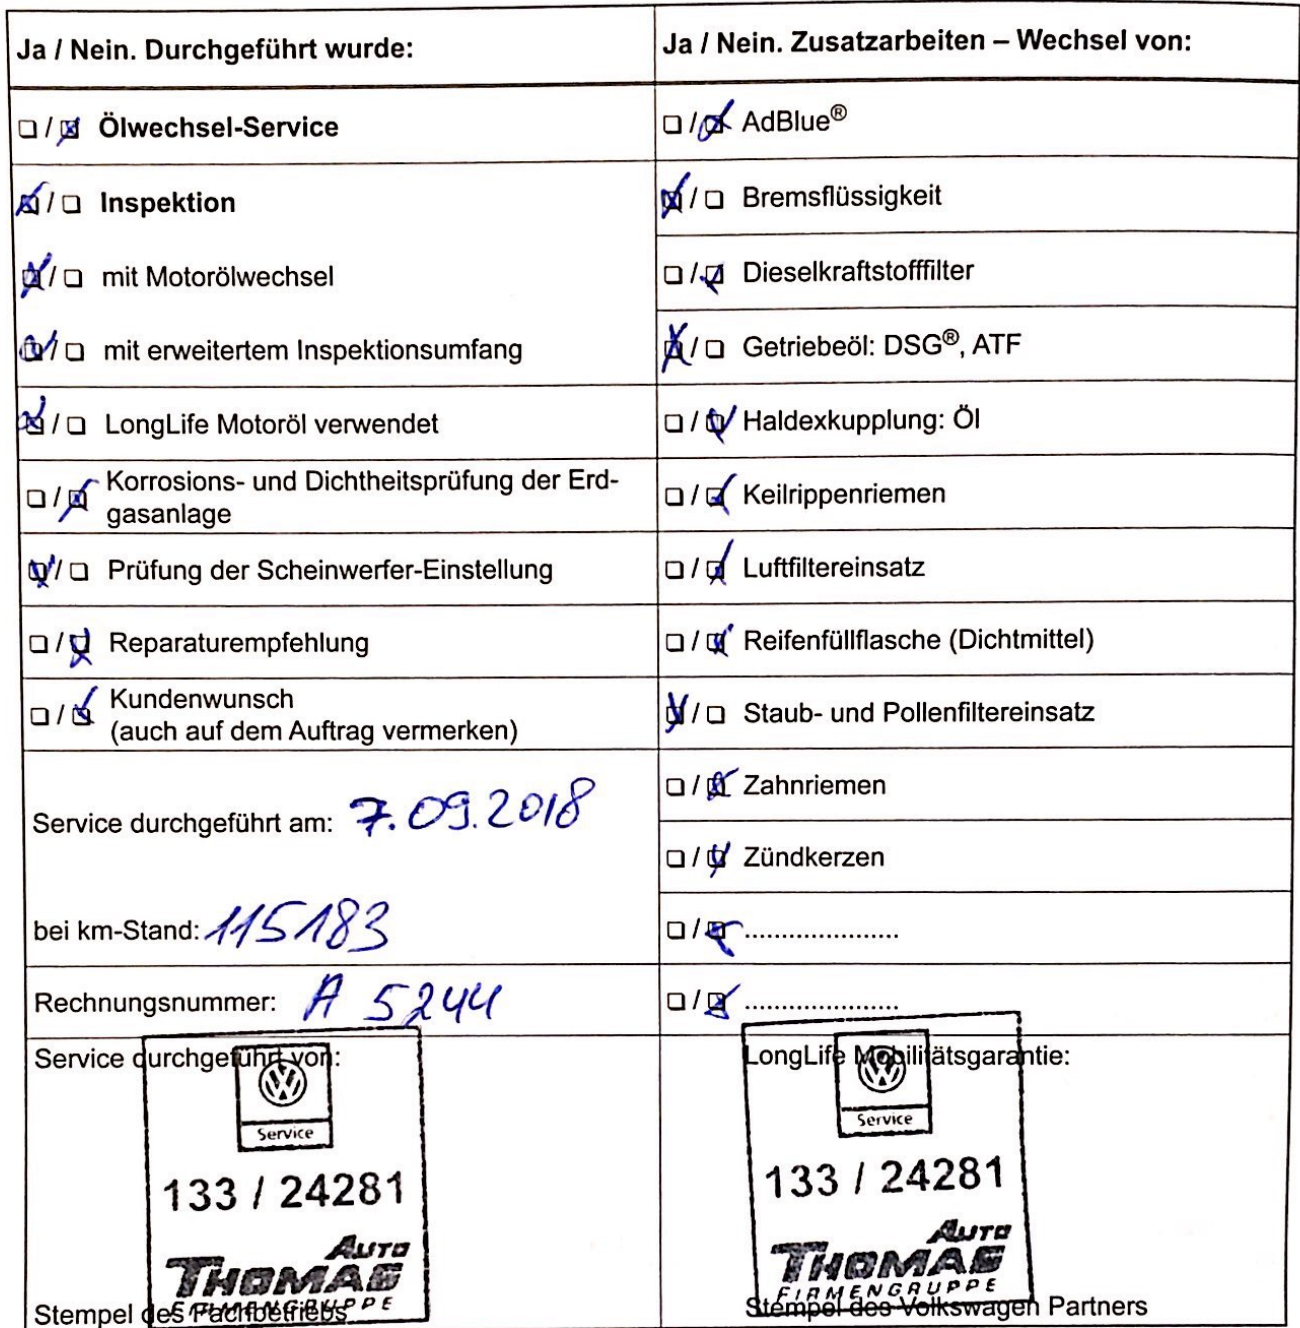 Ja / Nein. Durchgeführt wurde:
Ölwechsel-Service
Inspektion
mit Motorölwechsel
mit erweitertem Inspektionsumfang
LongLife Motoröl verwendet
Korrosions- und Dichtheitsprüfung der Erd-
gasanlage
Prüfung der Scheinwerfer-Einstellung
Reparaturempfehlung
Kundenwunsch
(auch auf dem Auftrag vermerken)
Service durchgeführt am: 7.09.2018
bei km-Stand: 115183
Rechnungsnummer: A 5244
Service durchgeführt von:
Service
133 / 24281
AUTO
THOMAS
FIRMENGRUPPE
Stempel des Fachbetriebs
Ja / Nein. Zusatzarbeiten – Wechsel von:
AdBlue®
Bremsflüssigkeit
Dieselkraftstofffilter
Getriebeöl: DSG®, ATF
Haldexkupplung: Öl
Keilrippenriemen
Luftfiltereinsatz
Reifenfüllflasche (Dichtmittel)
Staub- und Pollenfiltereinsatz
Zahnriemen
Zündkerzen
.....................
.....................
LongLife Mobilitätsgarantie:
Service
133 / 24281
AUTO
THOMAS
FIRMENGRUPPE
Stempel des Volkswagen Partners